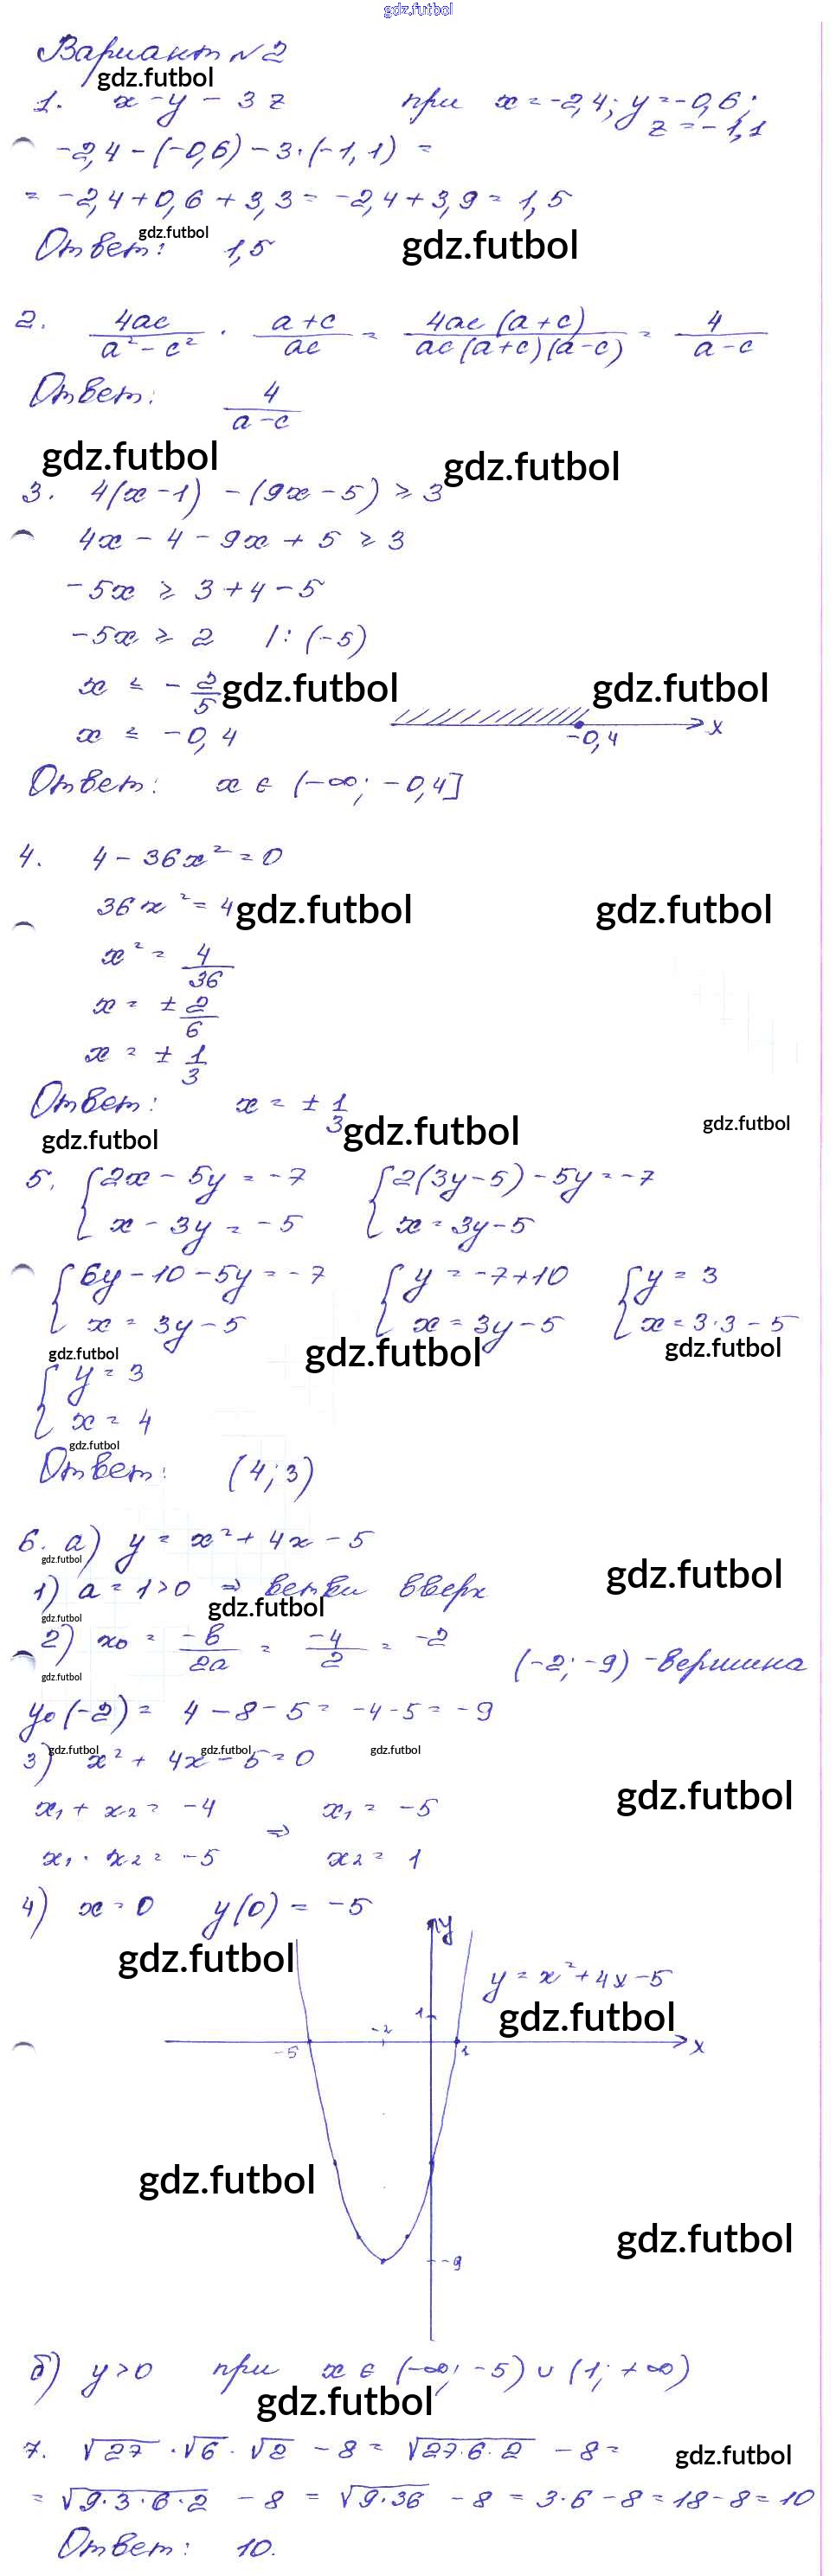 gdz.futbol
Вариант №2
gdz.futbol
1. x - y - 3z при x = -2,4; y = -0,6;
z = -1,1
-2,4 - (-0,6) - 3·(-1,1) =
= -2,4 + 0,6 + 3,3 = -2,4 + 3,9 = 1,5
gdz.futbol gdz.futbol
Ответ: 1,5
2. 4ac/(a² - c²) · (a+c)/ac = 4ac(a+c)/(ac(a+c)(a-c)) = 4/(a-c)
Ответ: 4/(a-c)
gdz.futbol gdz.futbol
3. 4(x-1) - (9x-5) ≥ 3
4x - 4 - 9x + 5 ≥ 3
-5x ≥ 3 + 4 - 5
-5x ≥ 2 |: (-5)
x ≤ -2/5 gdz.futbol gdz.futbol
x ≤ -0,4 -0,4 x
Ответ: x ∈ (-∞; -0,4]
4. 4 - 36x² = 0
36x² = 4 gdz.futbol gdz.futbol
x² = 4/36
x = ± 2/6
x = ± 1/3
Ответ: x = ± 1/3
gdz.futbol gdz.futbol gdz.futbol
5. { 2x - 5y = -7 { 2(3y-5) - 5y = -7
x - 3y = -5 x = 3y - 5
{ 6y - 10 - 5y = -7 { y = -7+10 { y = 3
x = 3y - 5 x = 3y - 5 x = 3·3 - 5
gdz.futbol gdz.futbol gdz.futbol
{ y = 3
x = 4
gdz.futbol
Ответ: (4; 3)
6. а) y = x² + 4x - 5
gdz.futbol gdz.futbol
1) a = 1 > 0 ⇒ ветви вверх
gdz.futbol gdz.futbol
2) x₀ = -b/2a = -4/2 = -2 (-2; -9) - вершина
gdz.futbol
y₀(-2) = 4 - 8 - 5 = -4 - 5 = -9
gdz.futbol gdz.futbol gdz.futbol
3) x² + 4x - 5 = 0
gdz.futbol
x₁ + x₂ = -4 ⇒ x₁ = -5
x₁ · x₂ = -5 x₂ = 1
4) x = 0 y(0) = -5
y
gdz.futbol
y = x² + 4x - 5
gdz.futbol
1
-2
-5 1 x
gdz.futbol
gdz.futbol
-9
б) y > 0 при x ∈ (-∞; -5) ∪ (1; +∞)
gdz.futbol
7. √27 · √6 · √2 - 8 = √27·6·2 - 8 =
gdz.futbol
= √9·3·6·2 - 8 = √9·36 - 8 = 3·6 - 8 = 18 - 8 = 10
Ответ: 10.